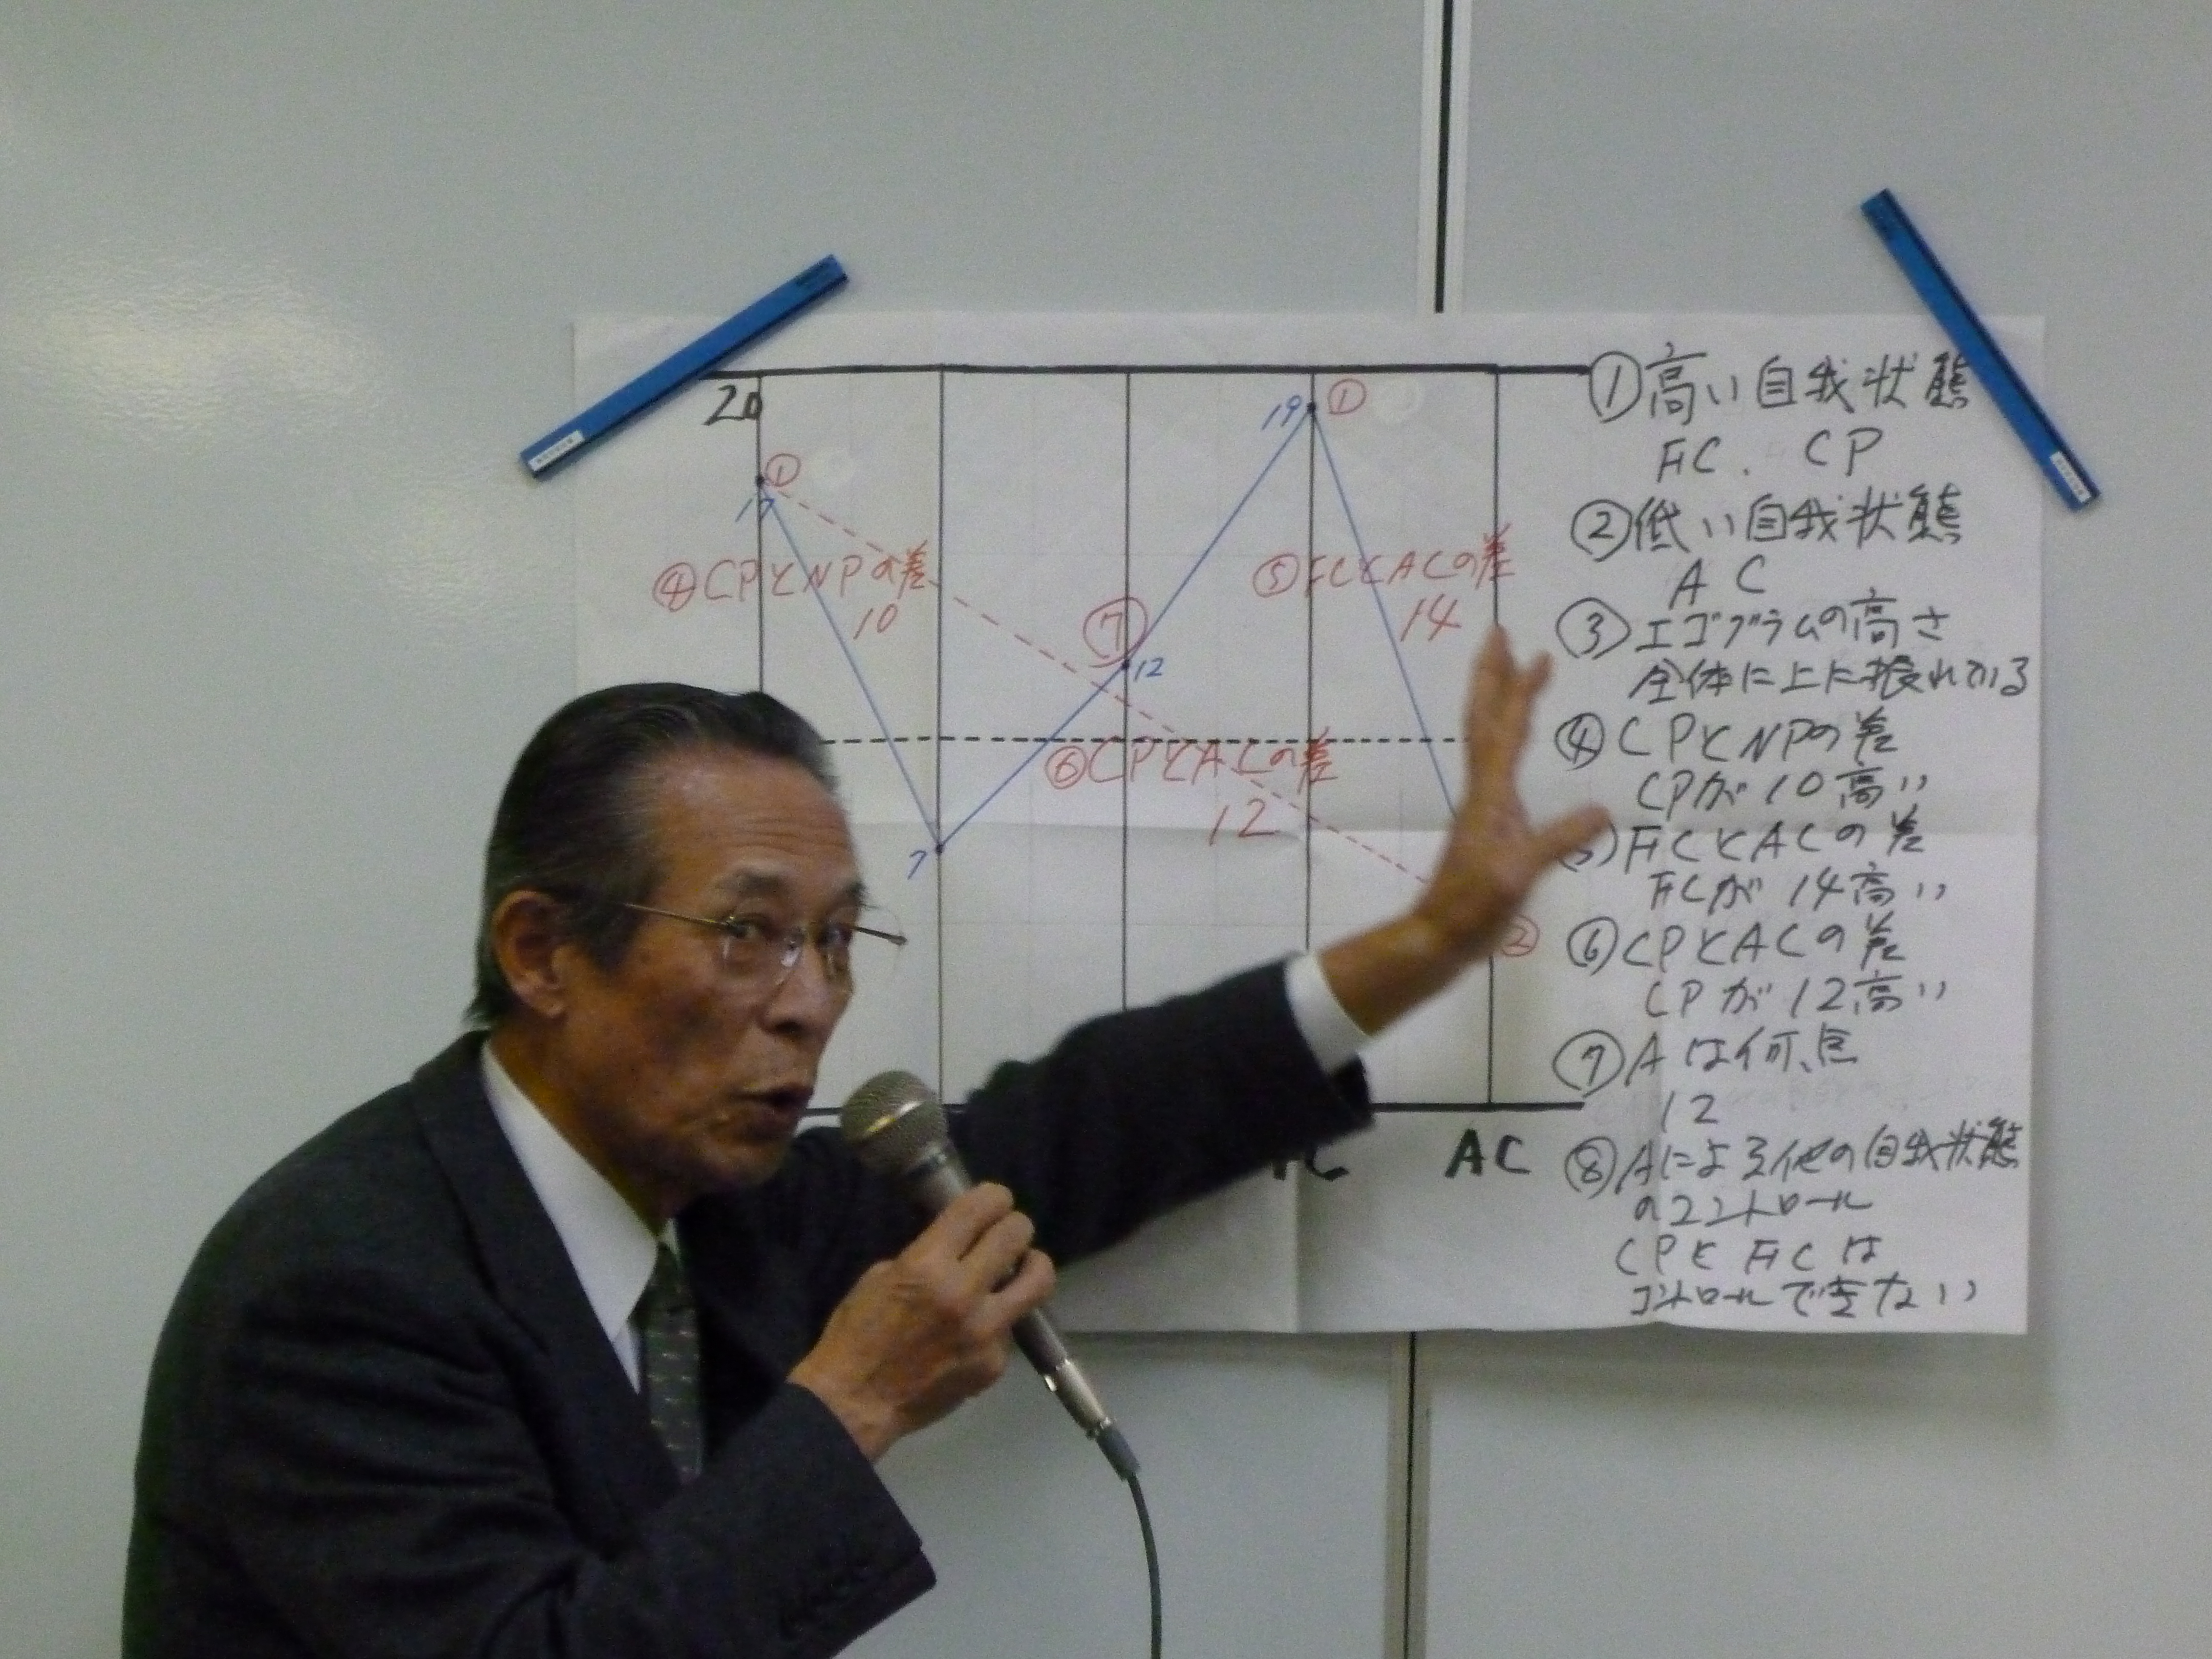 20
17
①
④CPとNPの差
10
7
⑦
12
19
①
⑤FCとACの差
14
⑥CPとACの差
12
②
FC
AC
①高い自我状態
FC. CP
②低い自我状態
AC
③エゴグラムの高さ
全体に上に振れている
④CPとNPの差
CPが10高い
⑤FCとACの差
FCが14高い
⑥CPとACの差
CPが12高い
⑦Aは何点
12
⑧Aによる他の自我状態
のコントロール
CPとFCは
コントロールできない